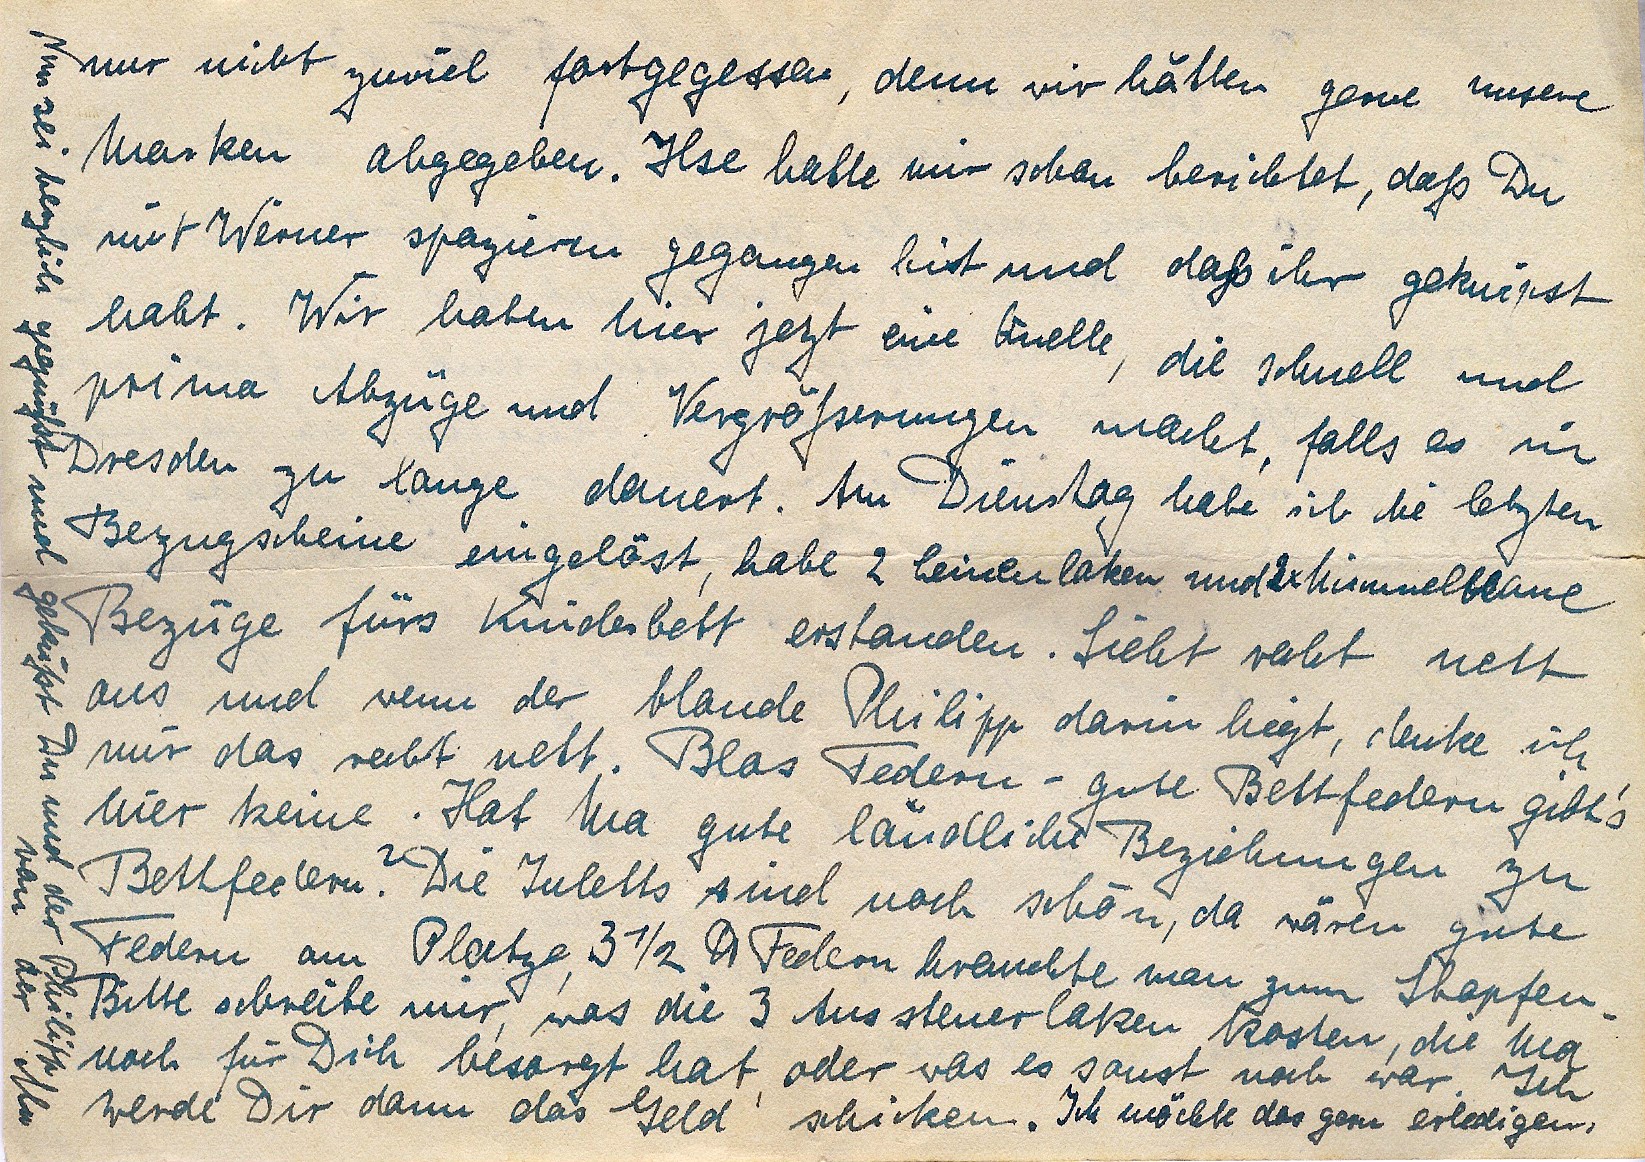 nur nicht zuviel fortgegessen, denn wir hätten gerne unsere
Marken abgegeben. Ilse hatte mir schon berichtet, daß Du
mit Werner spazieren gegangen bist und daß ihr geknipst
habt. Wir haben hier jetzt eine Quelle, die schnell und
prima Abzüge und Vergrößerungen macht, falls es in
Dresden zu lange dauert. Am Dienstag habe ich die letzten
Bezugscheine eingelöst, habe 2 Leinenlaken und 2x himmelblaue
Bezüge fürs Kinderbett erstanden. Sieht recht nett
aus und wenn der blonde Philipp darin liegt, denke ich
mir das recht nett. Blos Federn - gute Bettfedern gibt's
hier keine. Hat Ma gute ländliche Beziehungen zu
Bettfedern? Die Inletts sind noch schön, da wären gute
Federn am Platze, 3 1/2 Federn brauchte man zum Stopfen.
Bitte schreibe mir, was die 3 Aussteuerlaken kosten, die Ma
noch für Dich besorgt hat, oder was es sonst noch war. Ich
werde Dir dann das Geld schicken. Ich möchte das gern erledigen.
Nun sei herzlich gegrüßt und geküßt Du und der Philipp
von der